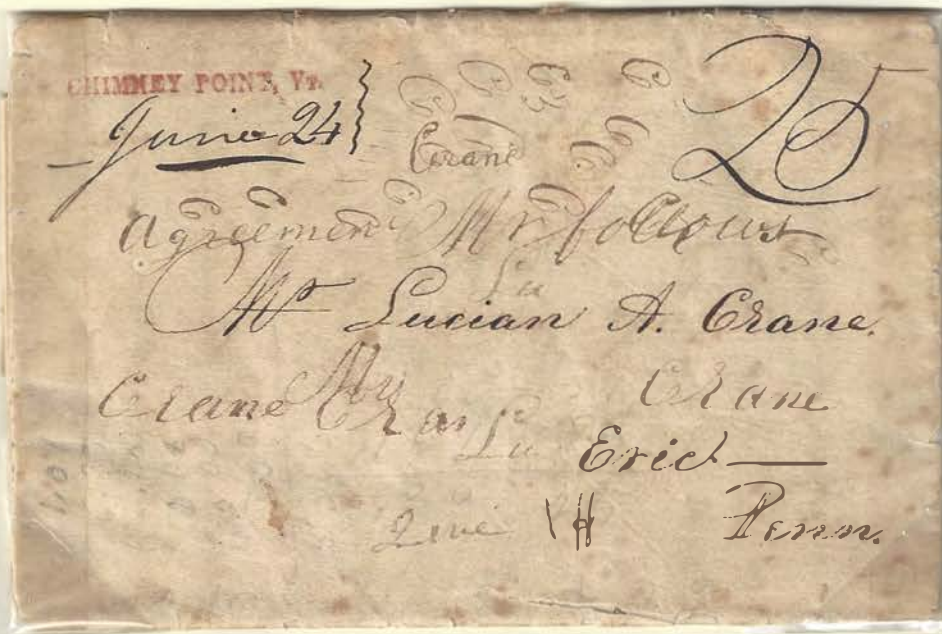 CHIMNEY POINT, Vt.
June 24
25
Crane
Agreement Mr follows
Lu
Mr Lucian A. Crane.
Crane My Cran
Crane
Lu
Erie
Penn.